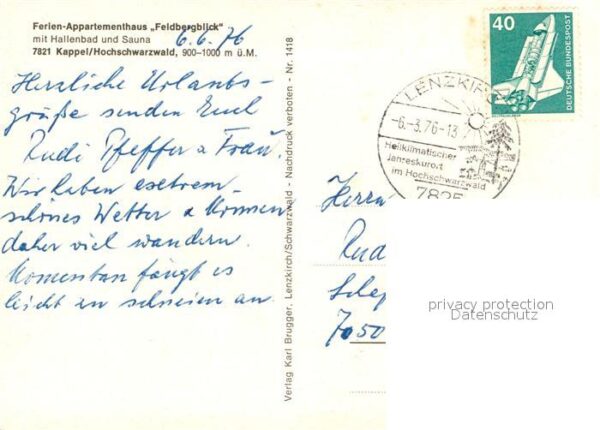 Ferien-Appartementhaus „Feldbergblick"
mit Hallenbad und Sauna
7821 Kappel/Hochschwarzwald, 900–1000 m ü.M.
6.6.76
Herzliche Urlaubs-
grüße senden Euch
Rudi Pfeffer u Frau.
Wir haben extrem
schönes Wetter u können
daher viel wandern.
Momentan fängt es
leicht zu schneien an
Verlag Karl Brugger, Lenzkirch/Schwarzwald - Nachdruck verboten - Nr. 1418
40
DEUTSCHE BUNDESPOST
LENZKIRCH
-6.-3.76-13
Heilklimatischer
Jahreskurort
im Hochschwarzwald
7825
Herrn
Rud
7050
privacy protection
Datenschutz